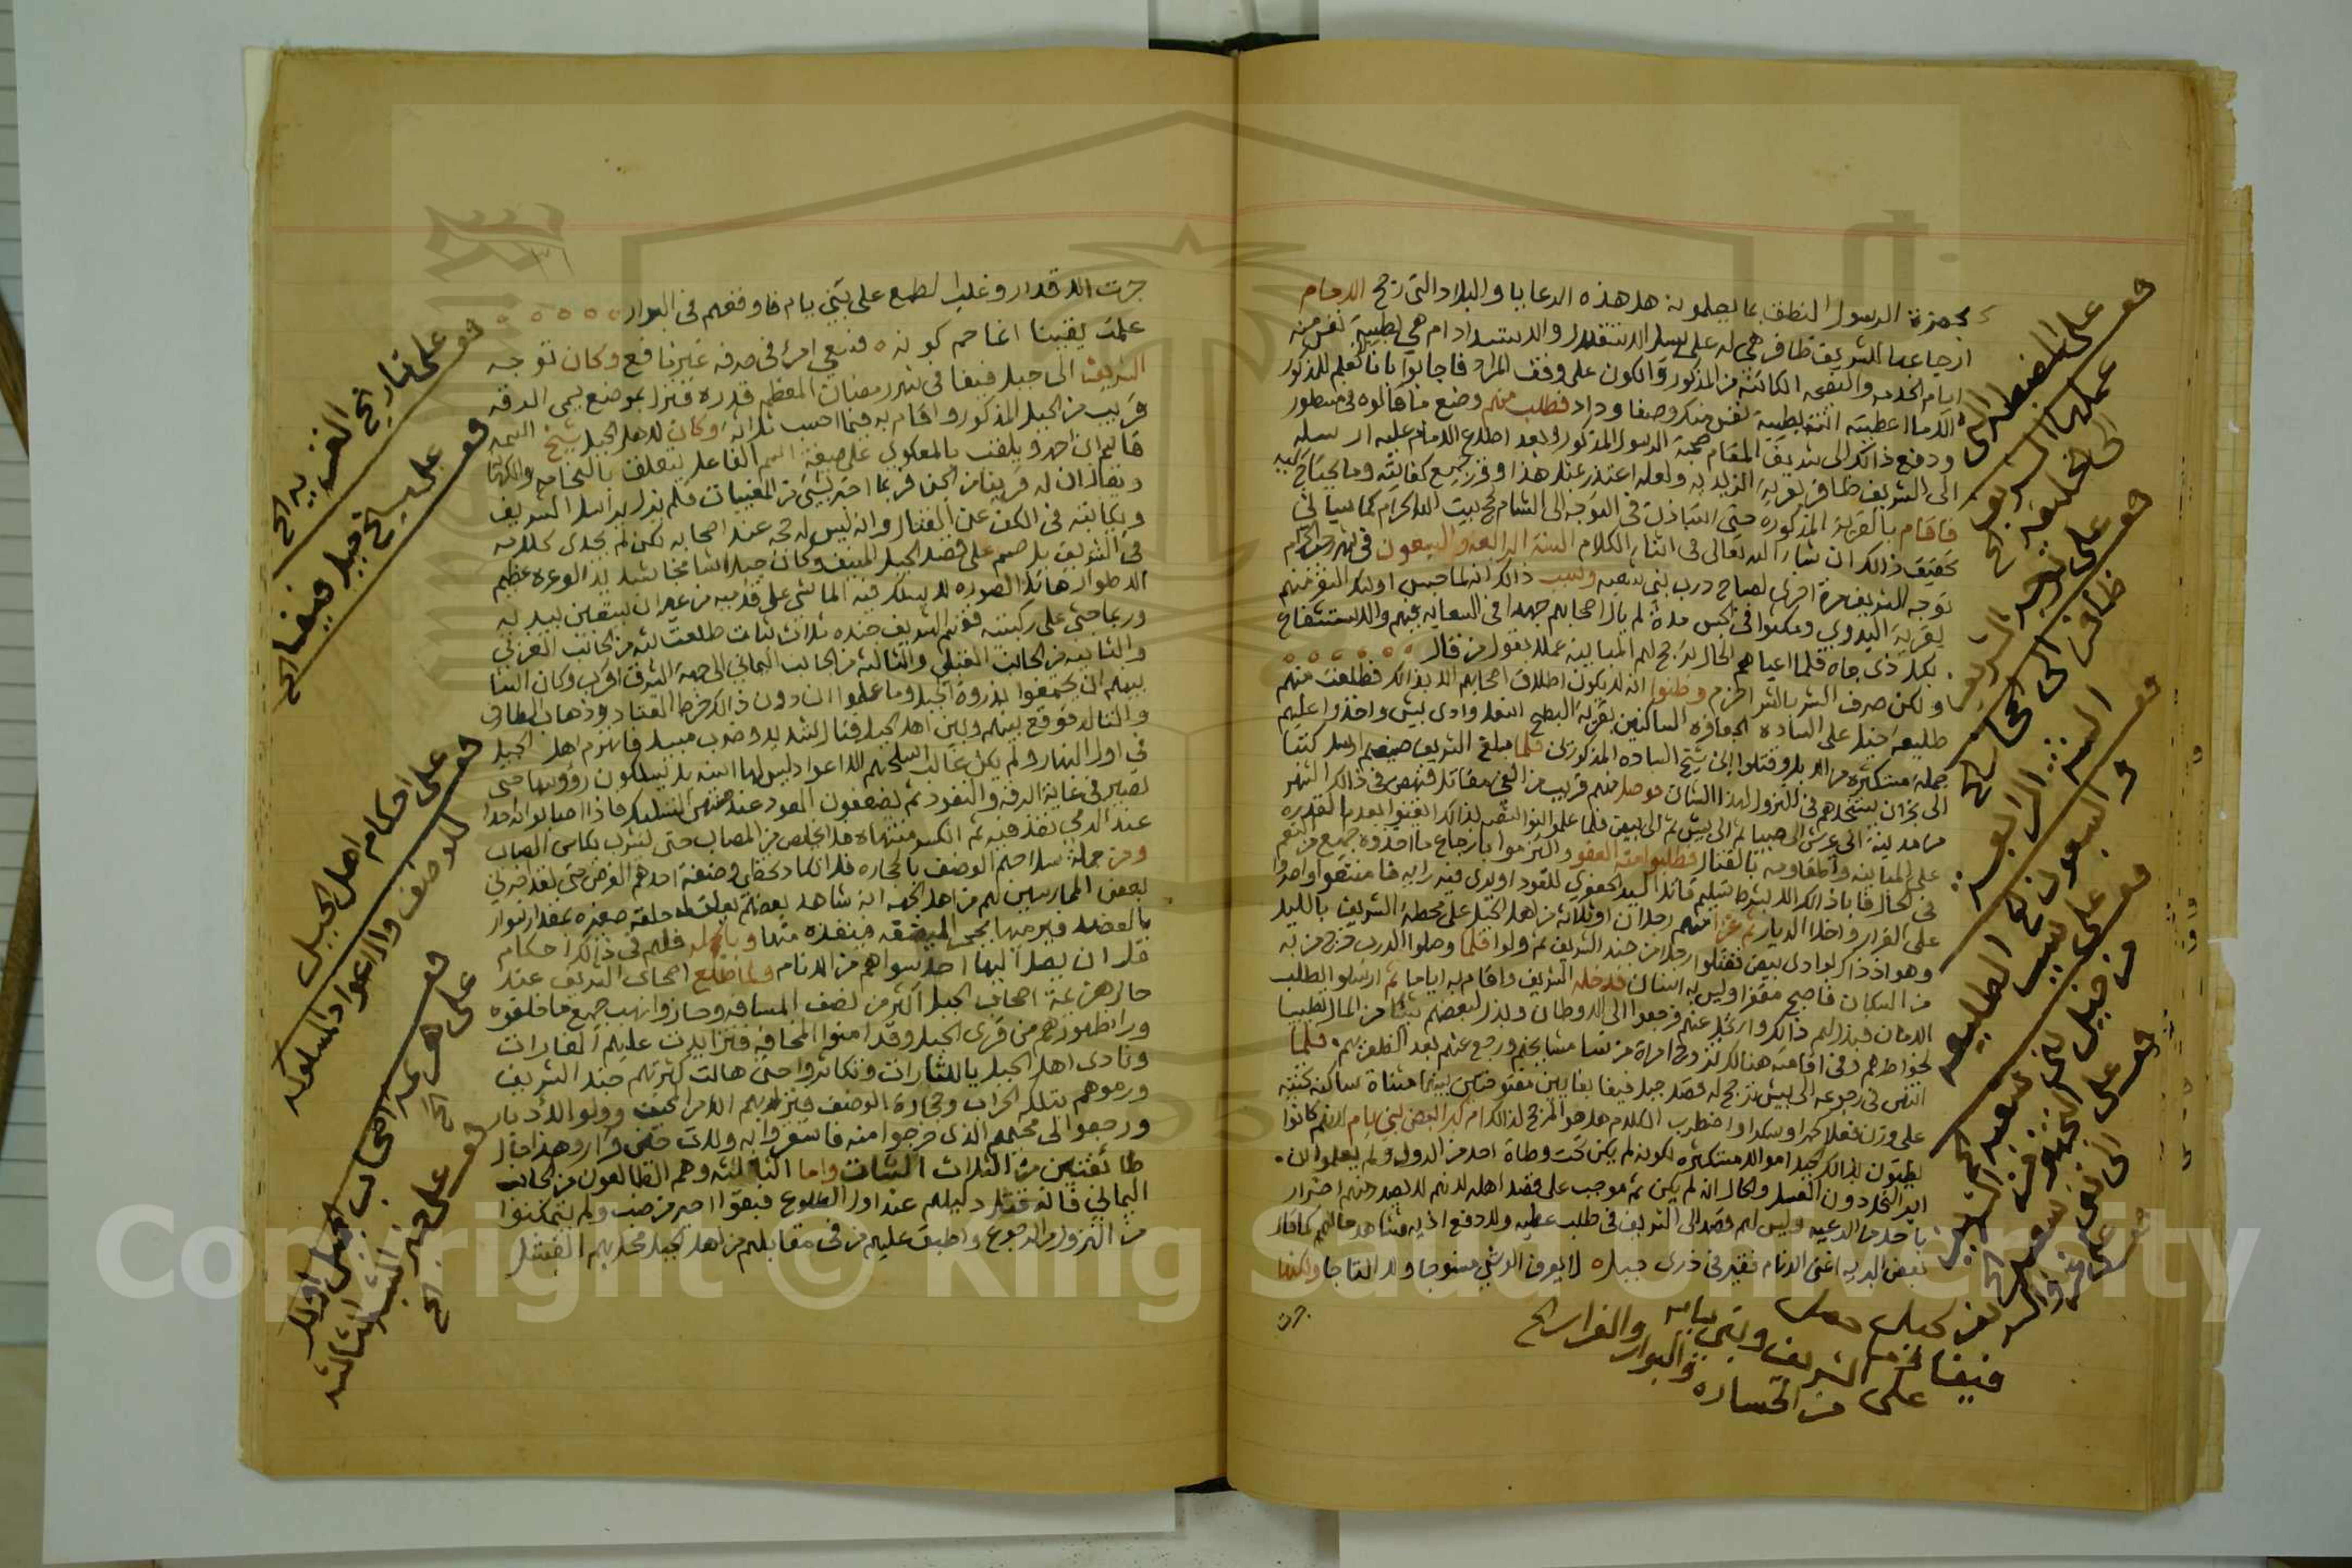 بحضرة الرسول النطف بما يعلمونه هل هذه الرعايا والبلاد التي رجح الامام
ارجاعها للشريف ظافر هي له على سبيل الاستقلال والاستبداد ام هي لطيبة نفس منه
ايام الخدمه والنصحه الكائنة من المذكور والكون على وفق المراد فاجابوا بانا لا نعلم للمذكور
الا ما اعطيته انت بطيبة نفس منك وصفا وداد فطلب منهم وضع ما قالوه في مسطور
ودفع ذالك الى شريف المقام صحبة الرسول المذكور وبعد اطلاع الامام عليه ارسله
الى الشريف ظافر بقرية الزيديه ولعله اعتذر عند هذا وقرر جميع كفايته وما يحتاج اليه
فاقام بالقرية المذكوره حتى استاذن في التوجه الى الشام لحج بيت الله الحرام كما سياتي
تحقيق ذالك ان شاء الله تعالى في اثناء الكلام السنة الرابعه والسبعون في شهر محرم الحرام
توجه الشريف مرة اخرى لصباح درب بني شعبه وسبب ذالك انه لما حبس اوليك النفر منهم
بقرية البدوي ومكثوا في الحبس مدة لم يال اصحابهم جهدا في السعايه فيهم والاستشفاع
بكل ذي جاه فلما اعياهم الحال ترجح لهم المباينه عملا بقول من قال
ولكن صرف الشر بالشر احزم وظنوا انه لا يكون اطلاق اصحابهم الا بذالك فطلعت منهم
طليعة خيل على الساده الجعافره الساكنين بقرية البطح اسفل وادي بيش واخذوا عليهم
جملة مستكثره من الابل وقتلوا ابن شيخ الساده المذكورين فلما بلغ الشريف صنيعهم ارسل كتبا
الى نجران يستنجدهم في النزول لهذا الشان فوصل منهم قريب من الفي مقاتل فنهض في ذالك الشهر
من مدينة ابي عريش الى صبيا ثم الى بيش ثم الى بيض فلما علموا بنو النفر بذالك ايقنوا بعدم القدره
على المباينه والمقاومه بالقتال فطلبوا منه العفو والتزموا بارجاع ما اخذوه جميع من النعم
في الحال فابا ذالك الا بشرط تسليم قاتل السيد الجعفري للقود او يرى فيه رايه فامتنعوا واصروا
على الفرار واخلا الديار ثم غزا منهم رجلان او ثلاثه من اهل الخيل على محطة الشريف بالليل
وهو اذ ذاك بوادي بيض فقتلوا رجلا من جند الشريف ثم ولوا فلما وصلوا الدرب خرج من به
من السكان فاصبح مقفرا وليس به انسان فدخله الشريف واقام به اياما ثم ارسلوا لطلب
الامان فبذل لهم ذالك وارتحل عنهم فرجعوا الى الاوطان وبذل لبعضهم شيئا من المال تطييبا
لخواطرهم وفي اقامته هنالك تزوج امراة من نسا مشايخهم ورجع عنهم بعد الفلة بهم فلما
انتهى في رجوعه الى بيش ترجح له قصد جبل فيفا بفايين مفتوحتين بينهما مثناة ساكنه تحتيه
على وزن فعلا كبرا وسكرا واضطرب الكلام هل هو المرجح لذالك ام كبرا البعض بني يام لانهم كانوا
يظنون بذالك الجبل اموالا مستكثره لكونه لم يكن تحت وطاة احد من الدول ولم يعلموا ان
ابر النحل دون العسل والحال انه لم يكن ثم موجب على قصد اهله لانهم لا يصل منهم اضرار
باحد من الرعيه وليس لهم قصد الى الشريف في طلب عطيه ولا دفع اذيه فشاهد حالهم كما قال
بعض البريه اغنى الانام فقير في ذرى جبل لا يعرف الوشي منسوجا ولا التاجا ولكنها
جرت
قف على المضطر الى
عملها الشريف
الى خليفه الخ
قف على توجه الشريف
ظافر الى مكه الخ
السنة الرابعة
والسبعون الخ
قف على سبب الطليعه
من خيل بني شعبه الخ
قف على الخيل الشريف
من بني شعبه الخ
قف على نزوله
لفز جبل
فيفا
على الشريف وبني يام
من الخساره والبوار والفرار الخ
١٣٦
جرت الاقدار وغلب الطمع على بني يام فاوقعهم في البوار
علمت يقينا انما حم كونه فسعي امرئ في صرفه غير نافع وكان توجه
الشريف الى جبل فيفا في شهر رمضان المعظم قدره فنزل بموضع يسمى الدقه
قريب من الجبل المذكور واقام به فيما احسب ثلاثه وكان لاهل الجبل شيخ اسمه
قاسم ابن احمد ويلقب بالمعكوي على صيغة اسم الفاعل يتعلق بالنجامه والكهانه
ويقال ان له قرينا من الجن فربما اخبر بشي من المغيبات فلم يزل يراسل الشريف
ويكاتبه في الكف عن القتال وانه ليس له محمدة عند اصحابه لكن لم يجدي كلامه
في الشريف بل صمم على قصد الجبل المنيف وكان جبلا شامخا شديد الوعره عظيم
الاطوار هائل الصوره لا يسلك فيه الماشي على قدميه من غير ان يستعين بيديه
وربما حبى على ركبتيه فقسم الشريف جنده ثلاث ثبات طلعت ثبة من الجانب الغربي
والثانيه من الجانب القبلي والثالثه من الجانب اليماني الى جهة الشرق اقرب وكان البنا
بينهم ان يجتمعوا بذروة الجبل وما علموا ان دون ذالك خرط القتاد وذهاب الطارف
والتالد فوقع بينهم وبين اهل الجبل قتال شديد وضرب مبيد فانهزم اهل الجبل
في اول النهار ولم يكن غالب اسلحتهم الا اعواد ليس لها اسنه بل يسلكون رؤوسها حتى
تصير في غاية الدقه والنفود ثم يضعفون العود عند منتهى التسليك فاذا اصابوا به احدا
عند الرمي نفذ فيه ثم انكسر منتهاه فلا يخلص من المصاب حتى يشرب بكاس الصاب
ومن جملة سلاحهم الوضف بالحجاره فلا تكاد تخطي وضفة احدهم الغرض حتى لقد اخبرني
بعض الممارسين لهم من اهل الجهه انه شاهد بعضهم يعلق حلقه صغيره بمقدار سوار
بالعضد فيرميها بحجر الميضفه فينفذه منها وبالجمله فلهم في ذالك احكام
قل ان يصل اليها احد سواهم من الانام ولما طلع اصحاب الشريف عند
حال هزيمة اصحاب الجبل اكثر من نصف المسافه وحازوا نهب جميع ما خلفوه
وراء ظهورهم من قرى الجبل وقد امنوا المخافه فتزايدت عليهم الغارات
ونادى اهل الجبل ياللثارات وتكاثروا حتى هالت كثرتهم جند الشريف
ورموهم بتلك الحراب وحجارة الوضف فنزل بهم الامر المخيف وولو الادبار
ورجعوا الى مخيمهم الذي خرجوا منه فاستقروا به ولات حين قرار وهذا حال
طائفتين من الثلاث الثبات واما الثالثه وهم الطالعون من الجانب
اليماني فانه قتل دليلهم عند اول الطلوع فبقوا احير من ضب ولم يتمكنوا
من النزول والرجوع واطبق عليهم من في مقابلهم من اهل الجبل محاربهم الفشل
قف على تاريخ الغريبه الخ
قف على شيخ جبل فيفا الخ
قف على احكام اهل الجبل
للوضف والاعواد المسلوكه
قف على هزيمة اصحاب الجبل اولا
الخ
قف على خبر الثبه الثالثه
الخ
Copyright © King Saud University